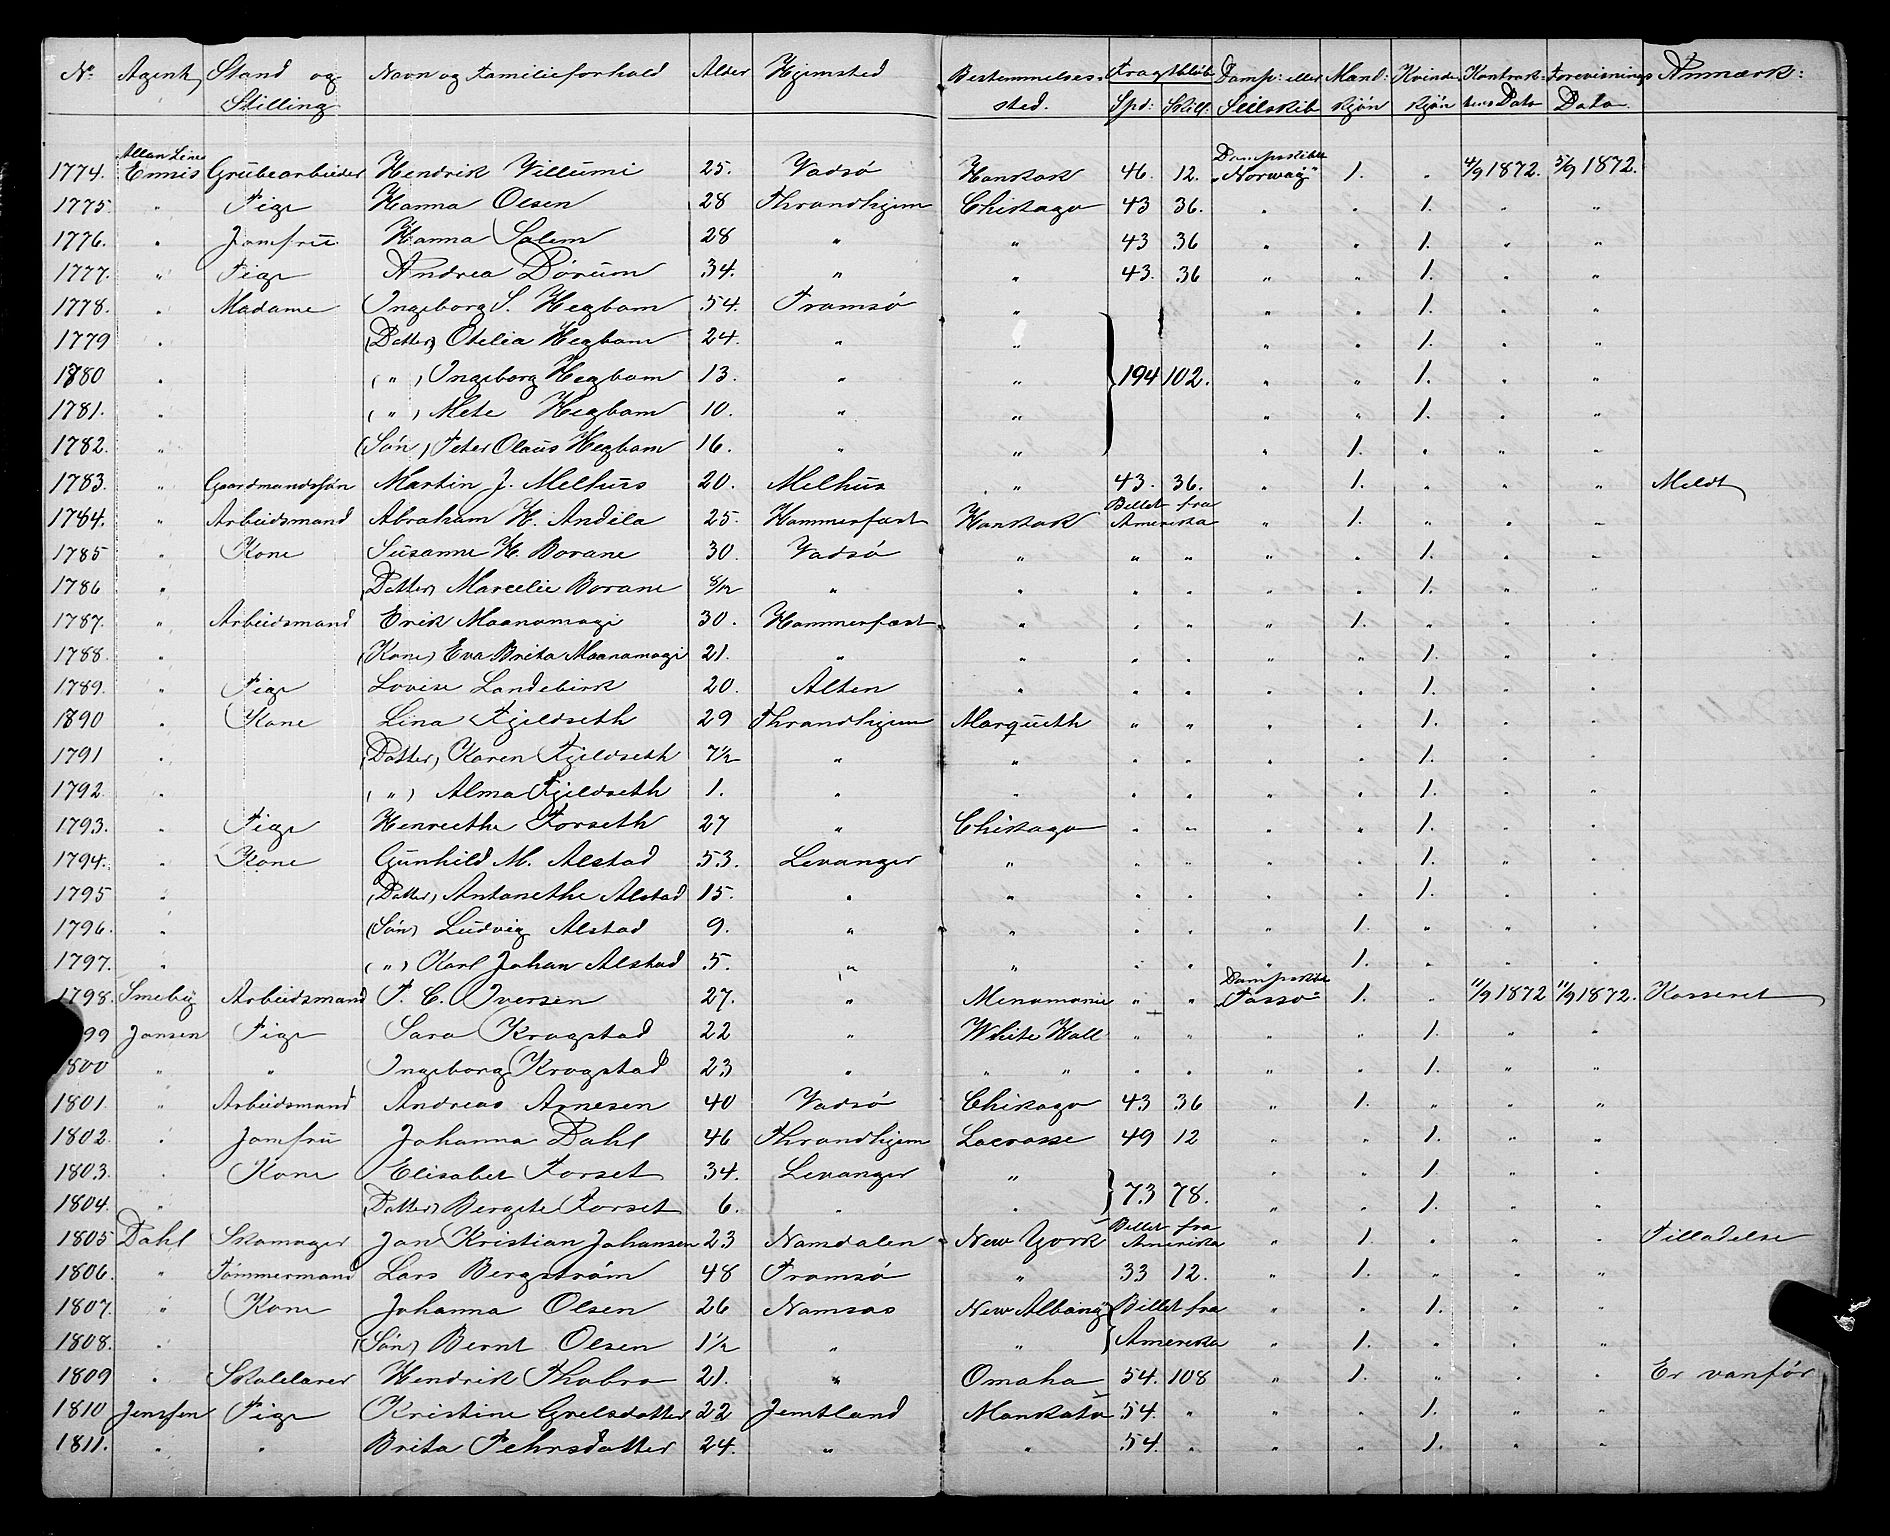 No. Agent, Stand og Stilling Navn og Familieforhold Alder Hjemsted Bestemmelses-sted. Fragtbeløb Spd: Skill: Damp: eller Seilskib Mand-kjøn Kvinde-kjøn Kontrak-tens Dato Forevisnings Dato Anmærk:
1774. Allan Line Ennis Grubearbeider Hendrik Villumi 25. Vadsø Hankok 46. 12. Dampskibet "Norway" 1. " 4/9 1872. 5/9 1872.
1775. " Pige Hanna Olsen 28 Throndhjem Chikago 43 36. " " 1. " "
1776. " Jomfru Hanna Solem 28 " " 43 36 " " 1. " "
1777. " Pige Andrea Dørum 34. " " 43. 36 " " 1. " "
1778. " Madame Ingeborg S. Hegbom 54. Tromsø " " " 1. " "
1779 " (Datter) Otelia Hegbom 24. " " " " 1. " "
1780 " ( " ) Ingeborg Hegbom 13. " " 194 102. " " 1. " "
1781. " ( " ) Mete Hegbom 10. " " " " 1. " "
1782. " (Søn) Peter Olaus Hegbom 16. " " " 1. " " "
1783. " Gaardmandssøn Martin J. Melhus 20. Melhus " 43. 36. " 1. " " " Meldt
1784. " Arbeidsmand Abraham H. Andila 25. Hammerfest Hankok Billet fra Amerika " 1. " " "
1785 " Kone Susanne H. Borane 30. Vadsø " " " " " 1. " "
1786 " (Datter) Marcelie Borane 8/12 " " " " " " 1. " "
1787. " Arbeidsmand Erik Maanamagi 30. Hammerfest " " " " 1. " " "
1788. " (Kone) Eva Brita Maanamagi 21. " " " " " " 1. " "
1789. " Pige Lovise Landebirk 20. Alten " " " " " 1. " "
1890 " Kone Lina Fjeldseth 29 Throndhjem Marqueth " " " " 1. " "
1791 " (Datter) Karen Fjeldseth 7½ " " " " " " 1. " "
1792 " ( " ) Alma Fjeldseth 1. " " " " " " 1. " "
1793. " Pige Henreethe Forseth 27 " Chikago " " " " 1. " "
1794. " Kone Gunhild M. Alstad 53. Levanger " " " " " 1. " "
1795 " (Datter) Antonethe Alstad 15. " " " " " " 1. " "
1796. " (Søn) Ludvig Alstad 9. " " " " " 1. " " "
1797. " ( " ) Karl Johan Alstad 5. " " " " " 1. " " "
1798. Smeby Arbeidsmand P. C. Iversen 27. " Menomonie " " Dampskibet "Tasso" 1. " 11/9 1872 11/9 1872. Kasseret
99 Jansen Pige Sara Krogstad 22 " White Hall " " " " 1. " "
1800 " " Ingeborg Krogstad 23 " " " " " " " 1. " "
1801. " Arbeidsmand Andreas Arnesen 40 Vadsø Chikago 43 36 " 1. " " "
1802. " Jomfru Johanna Dahl 46 Throndhjem Lacrosse 49 12 " " 1. " "
1803. " Kone Elisabet Forset 34. Levanger " 73 78. " " 1. " "
1804. " (Datter) Bergite Forset 6. " " " " 1. " "
1805 Dahl Skomager Jon Kristian Johansen 23 Namdalen New York Billet fra Amerika " 1. " " " Tilladelse
1806. " Tømmermand Lars Bergstrøm 48 Tromsø " 33 12. " 1. " " "
1807. " Kone Johanna Olsen 26 Namsos New Albany Billet fra Amerika " " 1. " "
1808. " (Søn) Bernt Olsen 1½ " " " 1. " " "
1809 " Skolelærer Hendrik Thobro 21. " Omaha 54. 108 " 1. " " " Er vanfør
1810 Jenssen Pige Kristine Grelsdatter 22 Jemtland Mankato 54. " " " 1. " "
1811. " " Brita Pehrsdatter 24. " " 54. " " " 1. " "